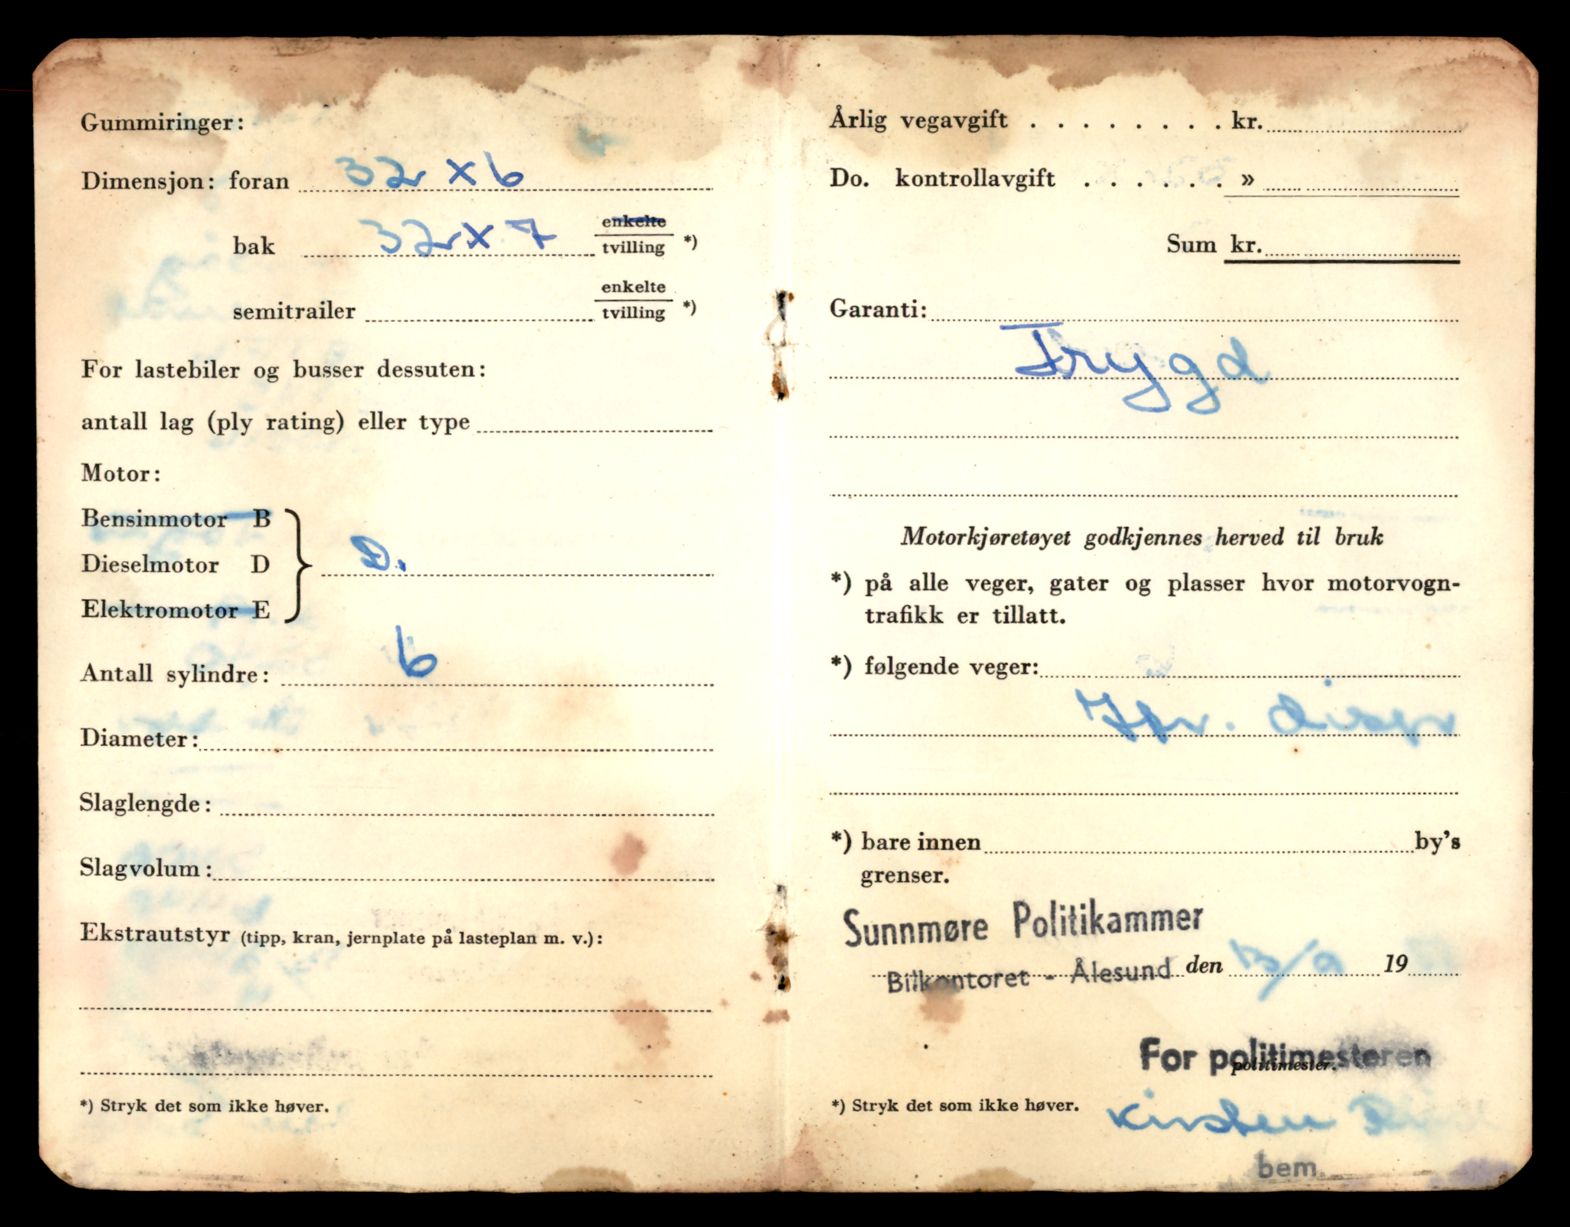 Gummiringer:
Dimensjon: foran 32 x 6
bak 32 x 7 enkelte
tvilling *)
semitrailer enkelte
tvilling *)
For lastebiler og busser dessuten:
antall lag (ply rating) eller type
Motor:
Bensinmotor B
Dieselmotor D D.
Elektromotor E
Antall sylindre: 6
Diameter:
Slaglengde:
Slagvolum:
Ekstrautstyr (tipp, kran, jernplate på lasteplan m. v.):
*) Stryk det som ikke høver.
Årlig vegavgift . . . . . . . . kr.
Do. kontrollavgift . . . . . . »
Sum kr.
Garanti:
Trygd
Motorkjøretøyet godkjennes herved til bruk
*) på alle veger, gater og plasser hvor motorvogn-
trafikk er tillatt.
*) følgende veger:
*) bare innen by's
grenser.
Sunnmøre Politikammer
Bilkontoret - Ålesund den 13/9 19
For politimesteren
politimester.
*) Stryk det som ikke høver.
Kirsten
bem.